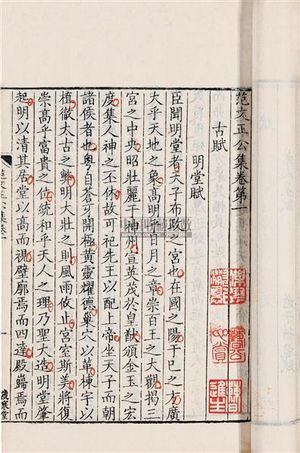 范文正公集卷第一
古賦
明堂賦
臣聞明堂者天子布政之宮也在國之陽于巳之方廣
大乎天地之象高明乎日月之章崇百王之大觀揭三
宮之中央昭壯麗于神州宣英茂於皇猷頒金玉之宏
度集人神之丕休故可祀先王以配上帝坐天子而朝
諸侯者也粵自蒼牙開極黃靈耀德巢穴以革棟宇以
植徹太古之弊明大壯之則風雨攸止宮室斯美將復
崇高乎富貴之位統和乎天人之理乃聖大造明堂肇
起明以清其居堂以高其視壁廓焉而四達殿巋焉而
范文正公集卷一
歲寒堂